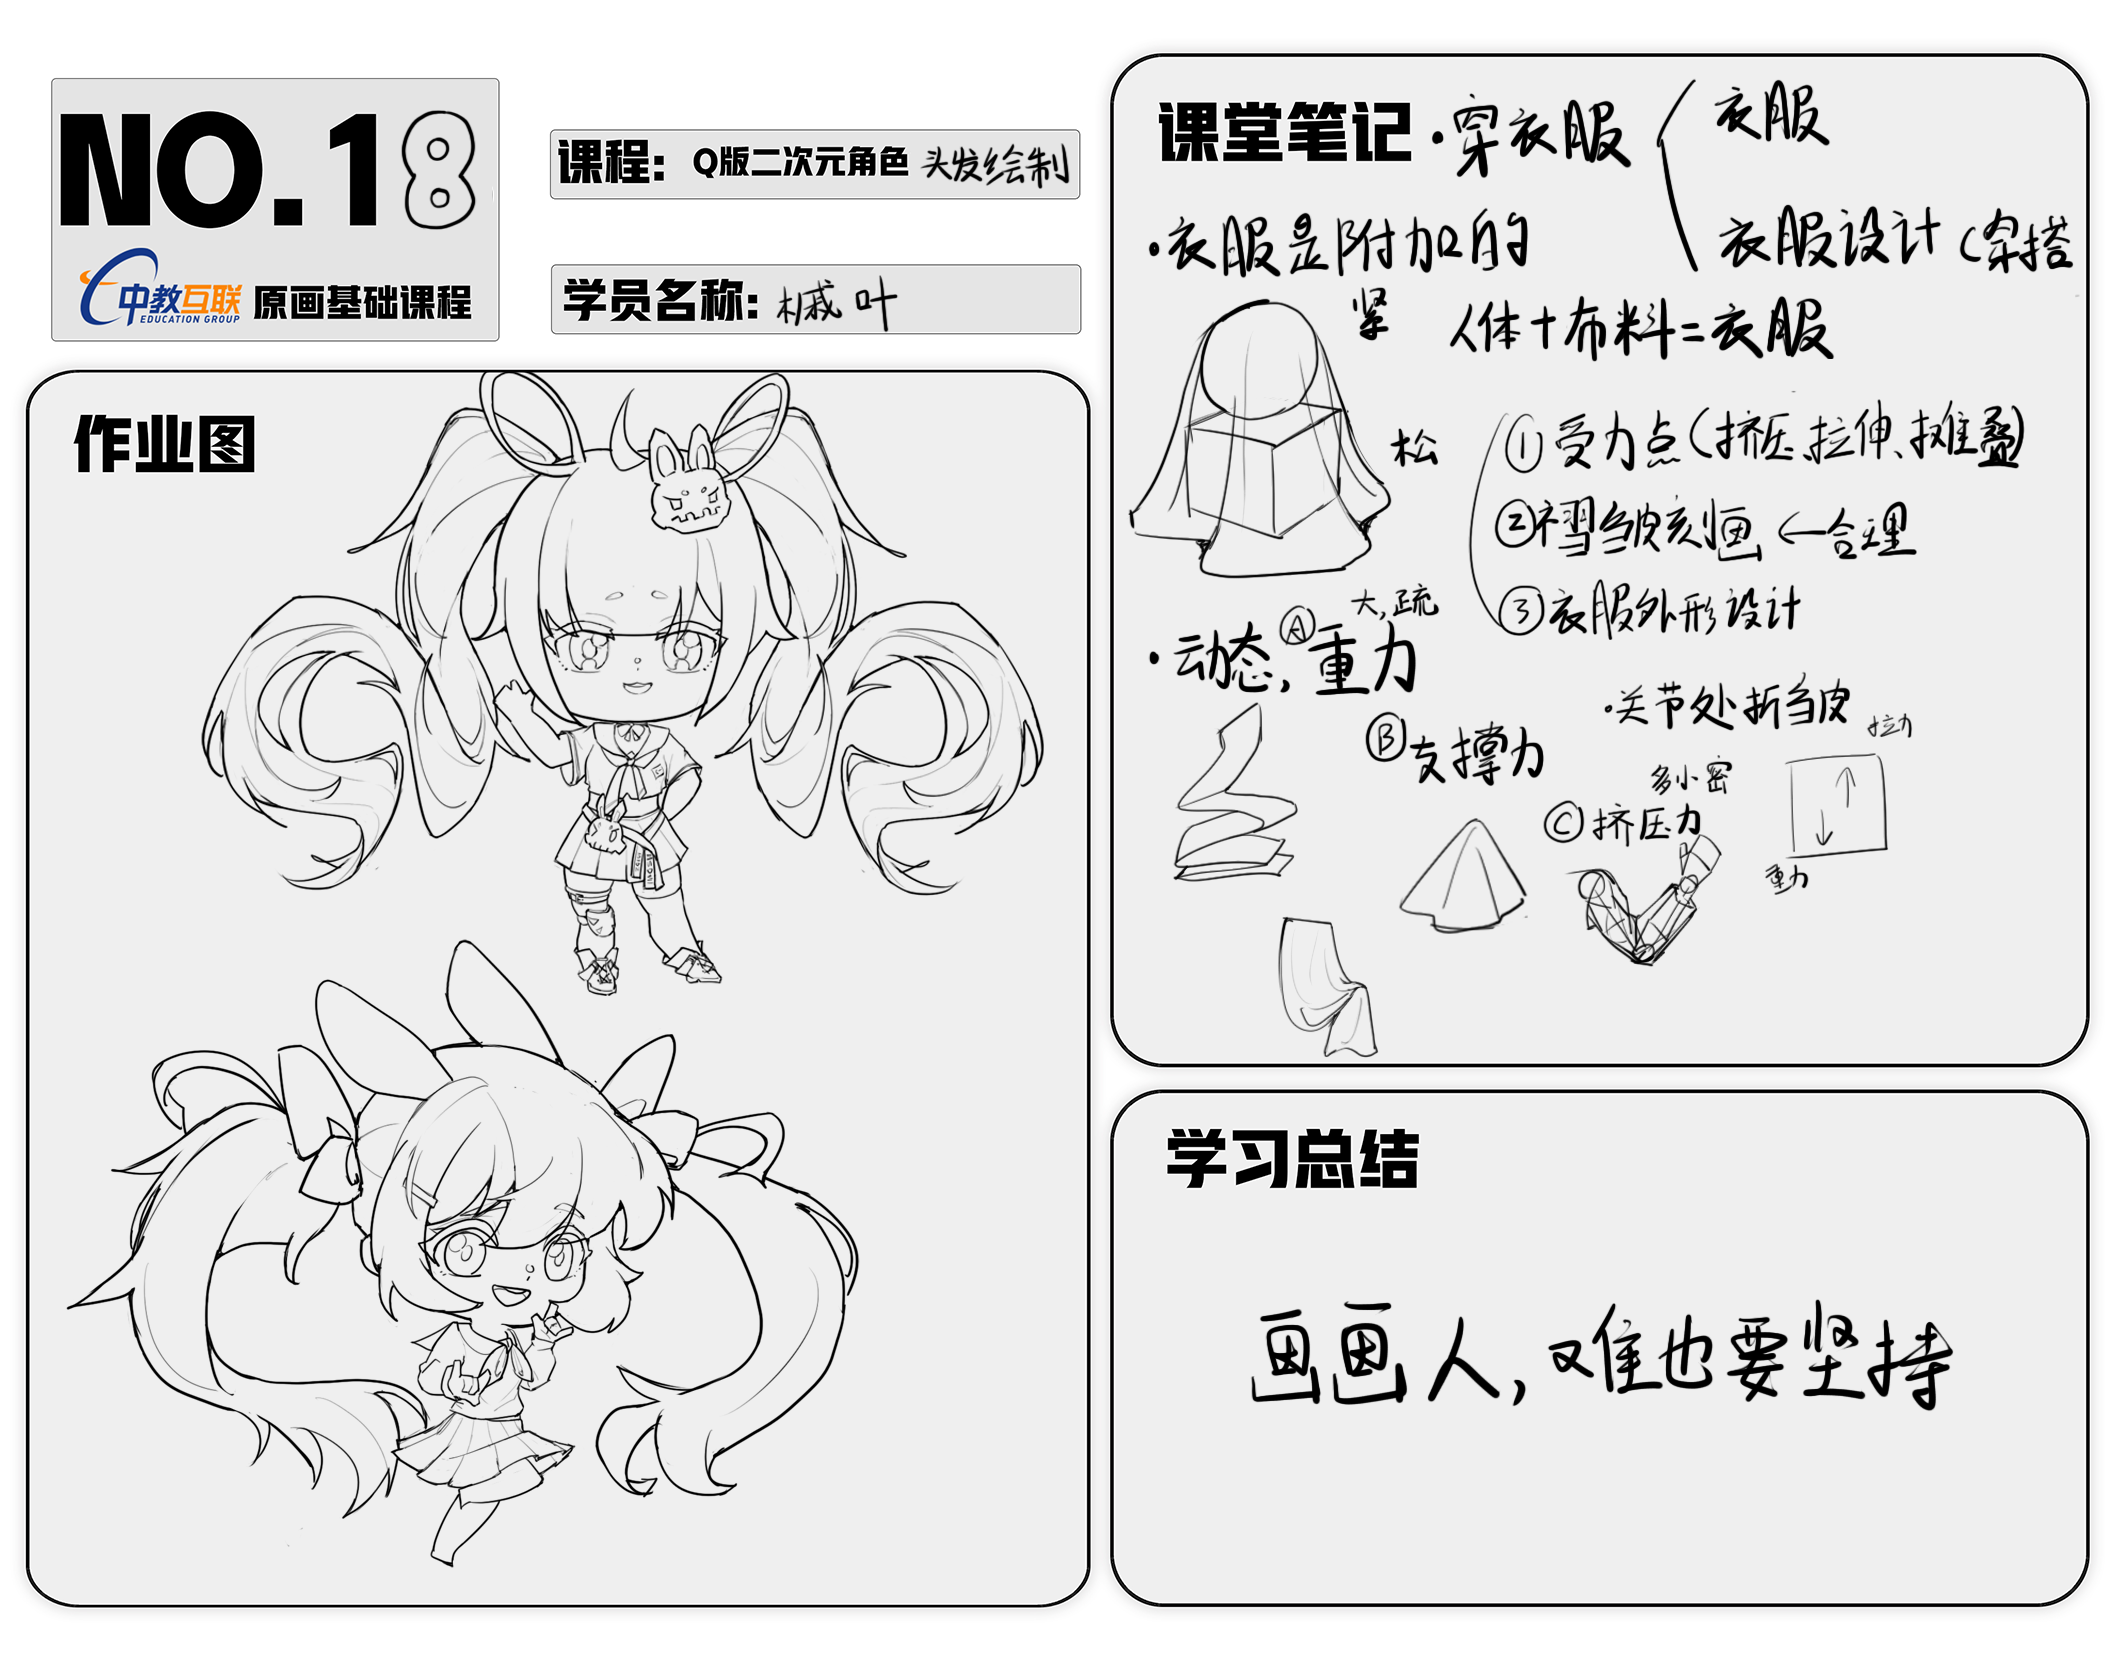 NO.18
中教互联
EDUCATION GROUP
原画基础课程
课程: Q版二次元角色 头发绘制
学员名称: 槭叶
作业图
课堂笔记
·穿衣服
衣服
衣服设计(穿搭
·衣服是附加的
紧
人体+布料=衣服
松
①受力点(挤压、拉伸、堆叠)
②褶皱刻画←合理
③衣服外形设计
大,疏
·动态,Ⓐ重力
Ⓑ支撑力
·关节处折皱
多小密
Ⓒ挤压力
拉力
重力
学习总结
画画人,难也要坚持